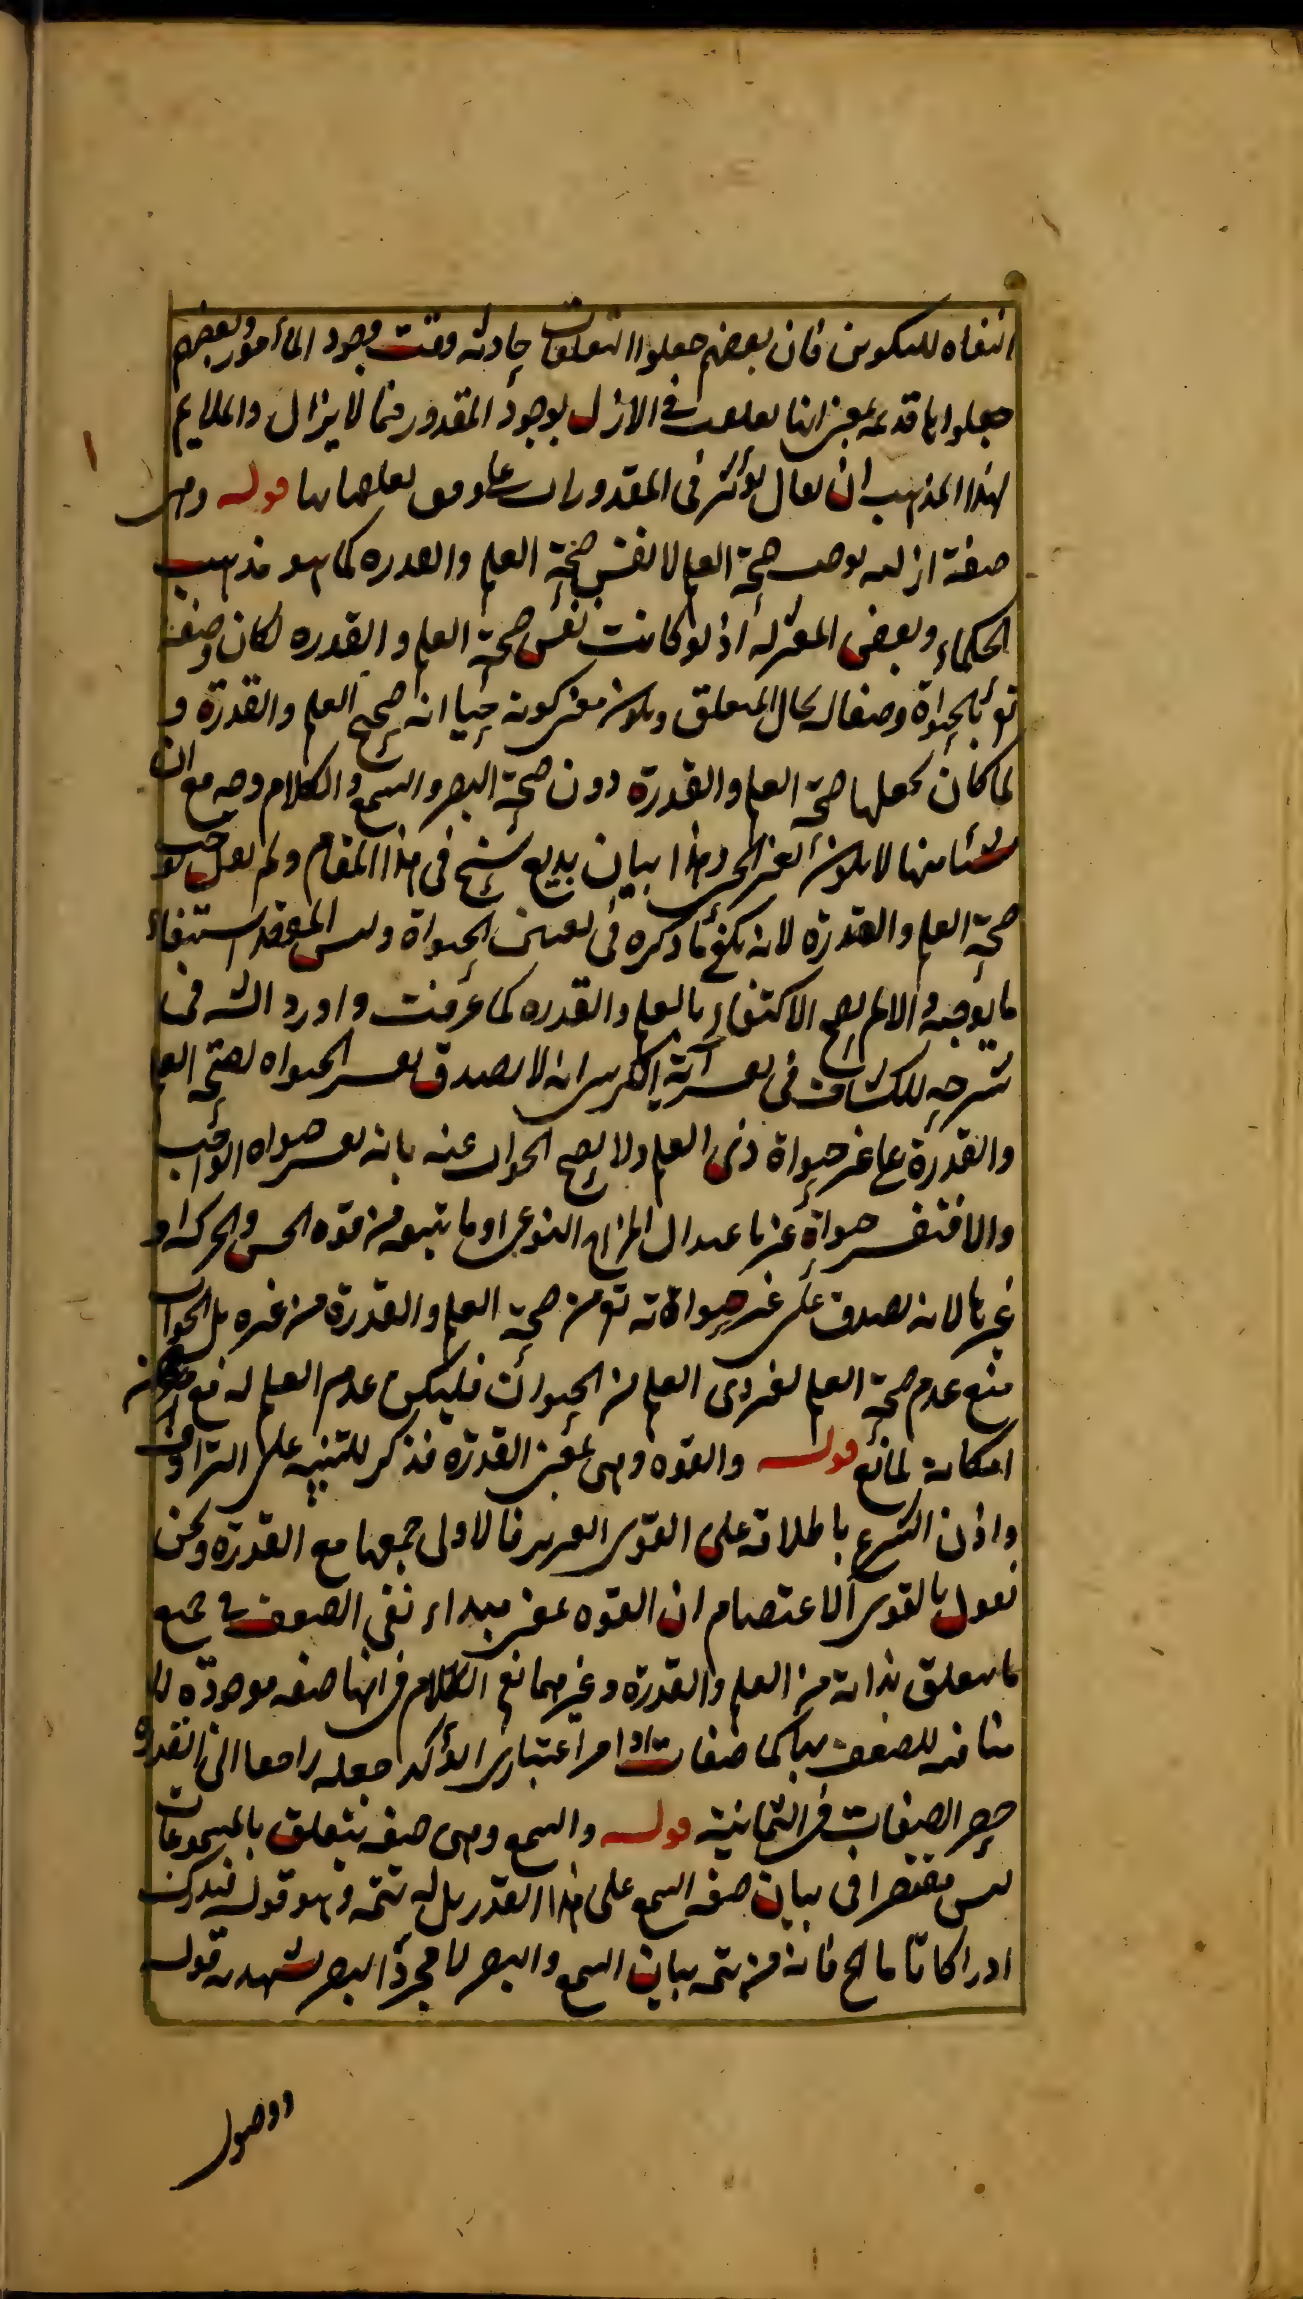 النفاه للتكوين فان بعضهم جعلوا التعلقات حادثه وقت وجود المأمور وبعضهم
جعلوا ها قديمة بمعنى انها تعلقت فى الازل بوجود المقدور فيما لا يزال والملايم
لهذا المذهب ان يقال تؤثر فى المقدورات على وفق تعلقها بها قوله وهى
صفة ازليه توجب صحة العلم لا نفس صحة العلم والقدره كما هو مذهب
الحكماء وبعض المعتزله اذ لو كانت نفس صحة العلم والقدره لكان وصفه
تع بالحيواة وصفا له بحال المتعلق ويكون معنى كونه حيا انه صحيح العلم والقدرة و
لما كان لجعلها صحة العلم والقدرة دون صحة البصر والسمع والكلام وجه مع ان
شيئا منها لا يكون لغير الحى وهذا بيان بديع سنح فى هذا المقام ولم يقل توجب
صحة العلم والقدرة لانه يكفى ما ذكره فى تعيين الحيواة وليس المقصد استيفاء
ما يوجبه والا لم يصح الاكتفاء بالعلم والقدره كما عرفت واورد الشه فى
شرحه للكشاف فى تفسير آية الكرسى انه لا يصدق تفسير الحيواه بصحة العلم
والقدرة على غير حيواة ذى العلم ولا يصح الجواب عنه بانه تفسير حيواه الواجب
والا فتفسر حيواة غيره باعتدال المزاج النوعى او ما يتبعه من قوه الحس والحركه او
غيرها لانه يصدق على غير حيواته تع من صحة العلم والقدرة من غيره بل الجواب
منع عدم صحة العلم لغير ذى العلم من الحيوان فليكن عدم العلم له مع
امكانه لمانع قوله والقوه وهى بمعنى القدرة فذكر للتنبيه على الترادف
واذن الشرع باطلاقه على القوى العزيز فالاولى جمعها مع القدرة ونحن
نقول بالقوى الاعتصام ان القوه بمعنى مبداء نفى الضعف فى جميع
ما يتعلق بذاته من العلم والقدرة وغيرهما نعم الكلام فى انها صفه موجودة لها
منافيه للضعف بها كما صفات او امر اعتبارى اذ أكد جعله راجعا الى القدرة
حصر الصفات فى الثمانية قوله والسمع وهى صفه يتعلق بالمسموعات
ليس مقتصرا فى بيان صفه السمع على هذا القدر بل له تتمه وهو قوله فيدرك
ادراكا تاما الخ فانه من تتمه بيان السمع والبصر لا مجرد البصر يشهد به قوله